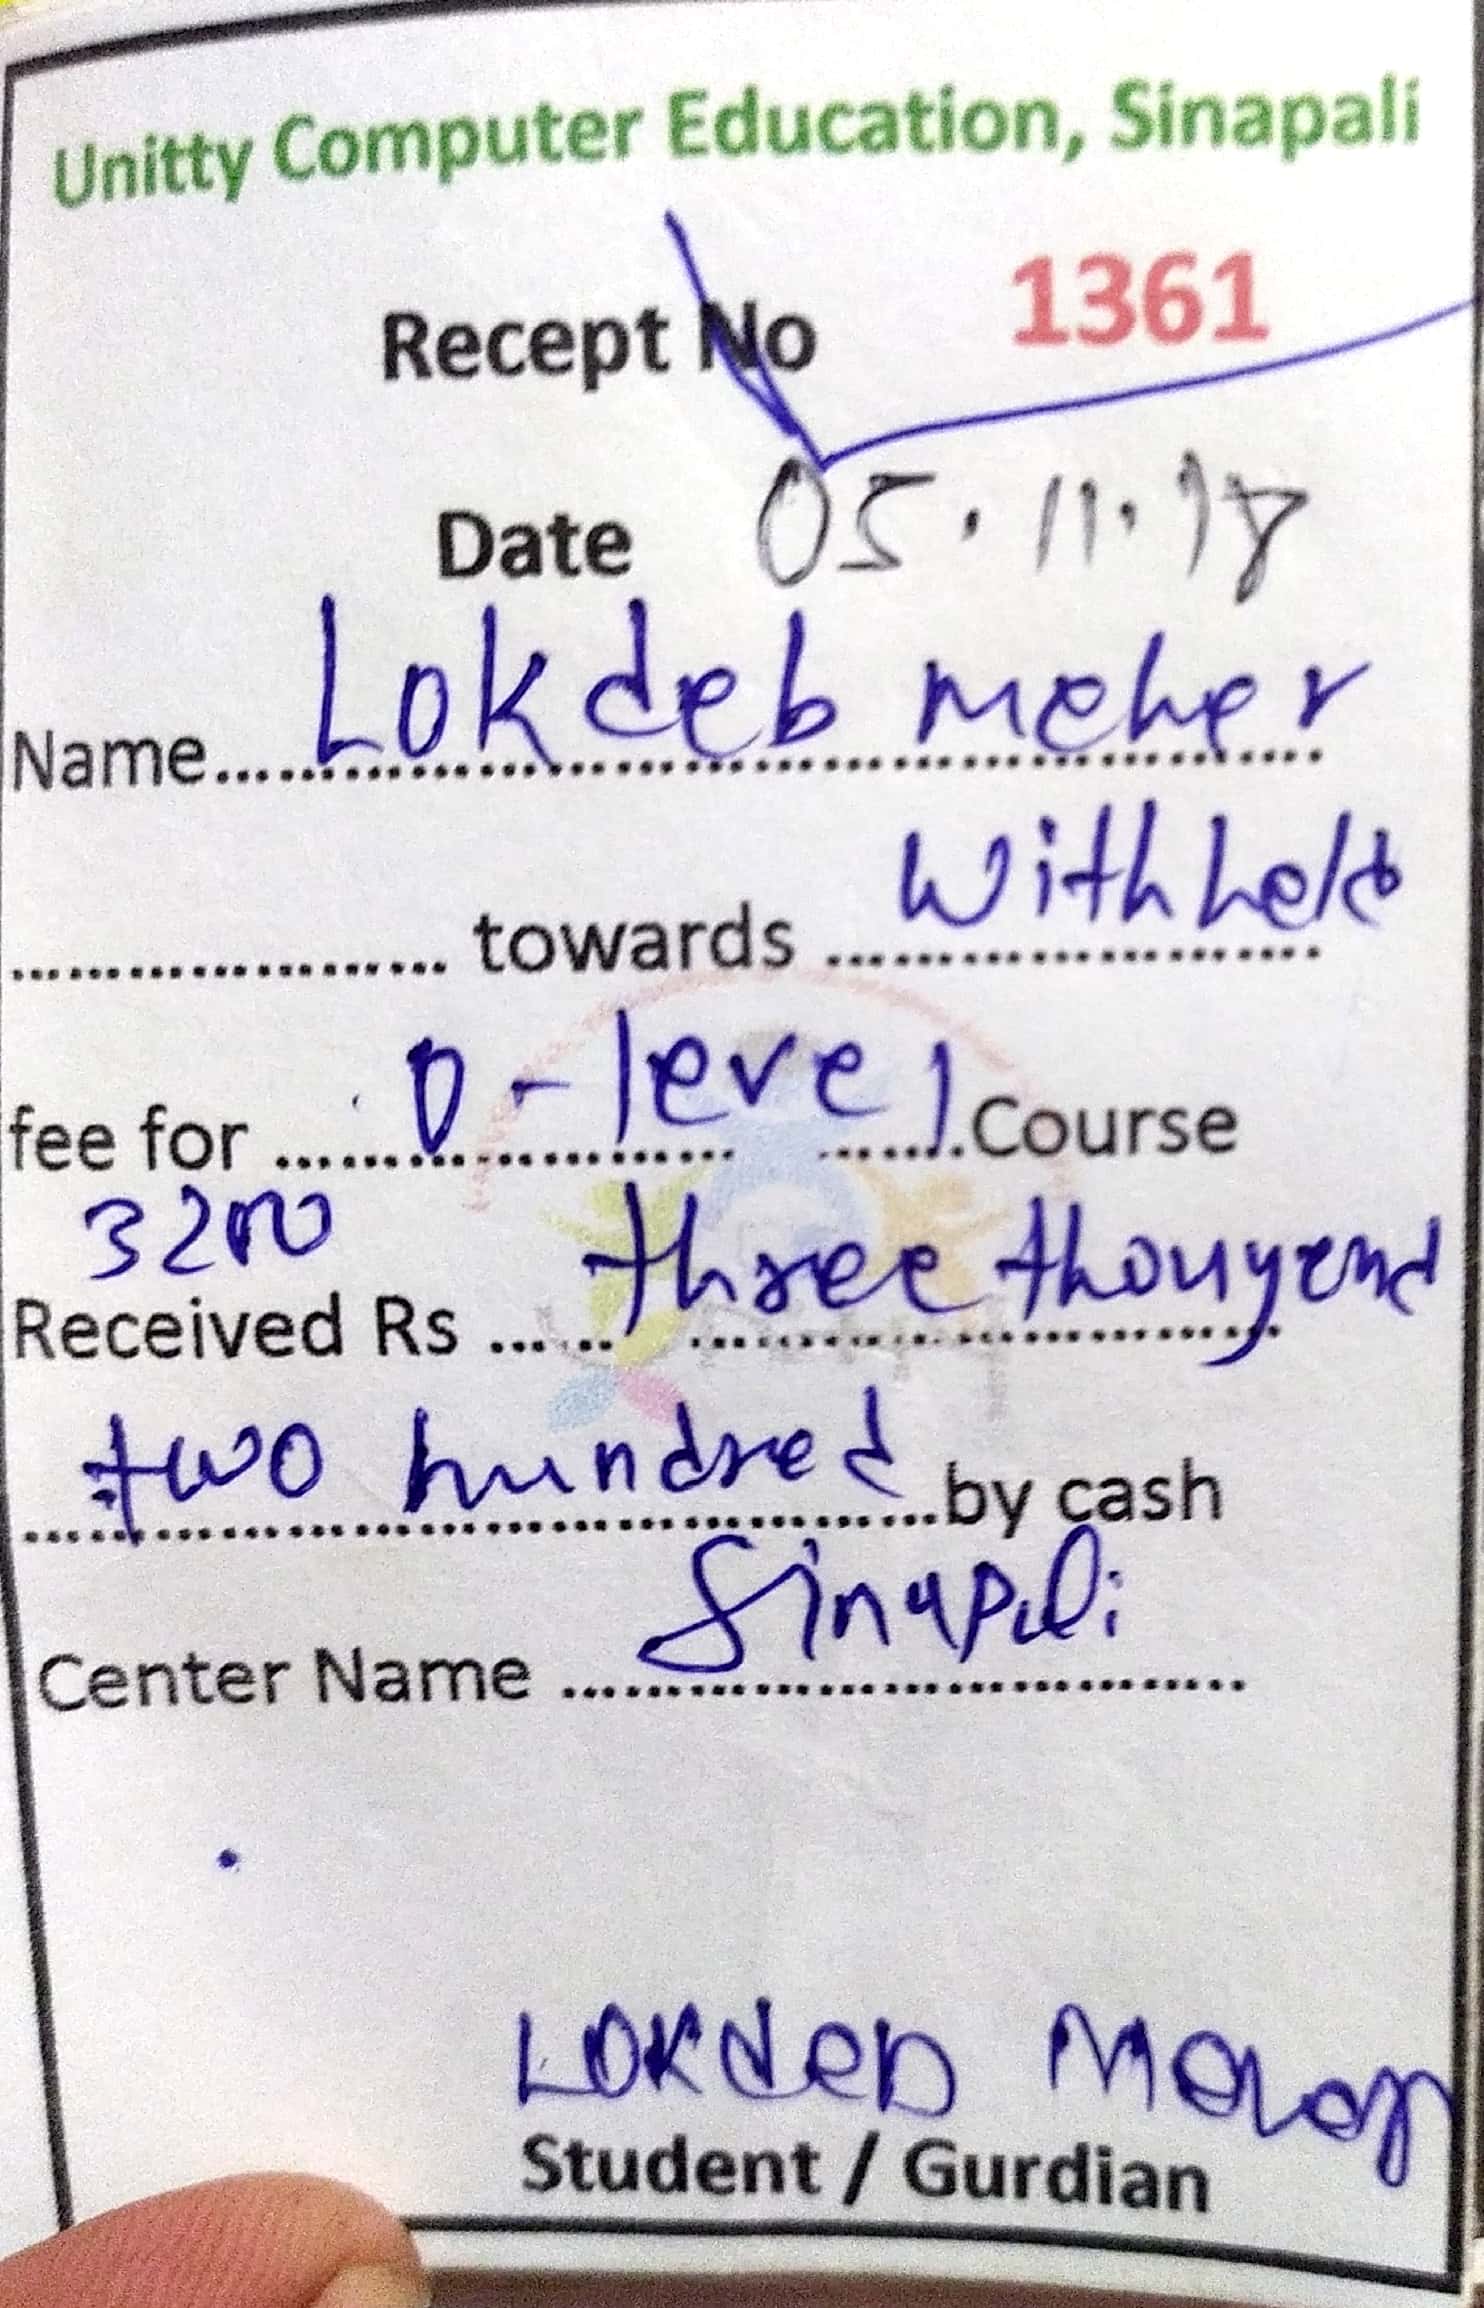 Unitty Computer Education, Sinapali
Recept No 1361
Date 05.11.18
Name.....Lokdeb meher
..................... towards Withheld
fee for ..... O-level.Course
3200
Received Rs ...... three thousend
two hundred by cash
Center Name Sinapali
Lokdeb Meher
Student / Gurdian